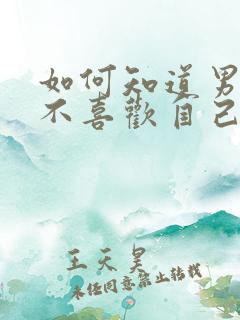 如何知道男
不喜歡自己
王天昊
未經同意禁止轉載